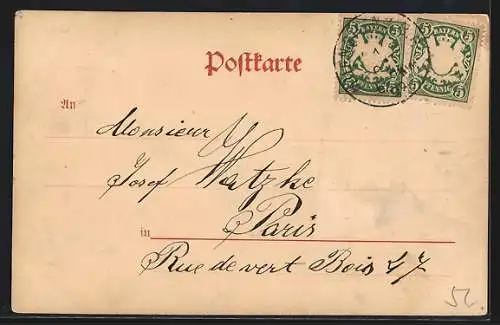 5 BAYERN 5
5 PFENNIG 5
5 BAYERN 5
5 PFENNIG 5
Postkarte
An
Monsieur
Josef Watzke
in Paris
Rue de vert Bois 47
52